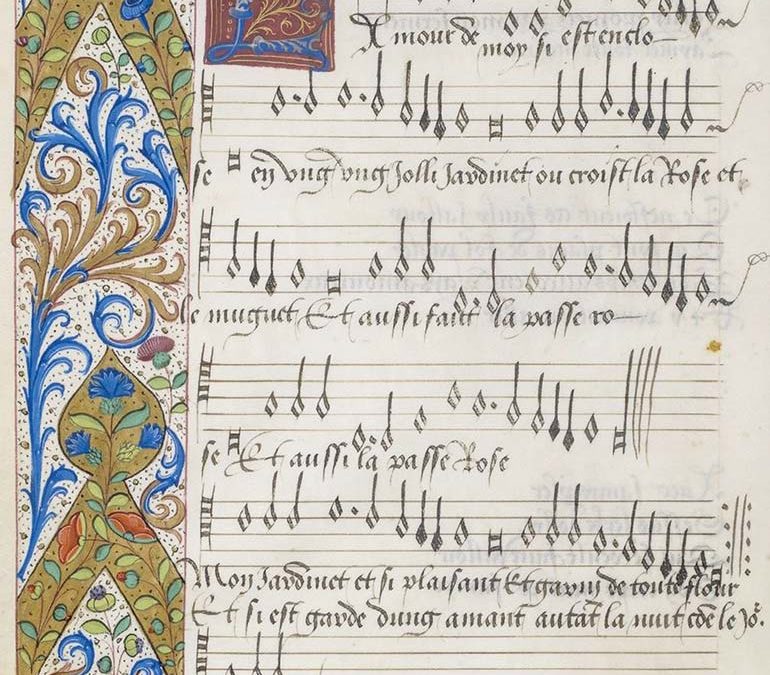 Amour de moy si est enclo
se en ung ung Jolli Jardinet ou croist la Rose et
le muguet Et aussi fait la passe ro
se Et aussi la passe Rose
Mon Jardinet et si plaisant Et garny de toute flour
Et si est garde dung amant autāt la nuit cōe le Jo